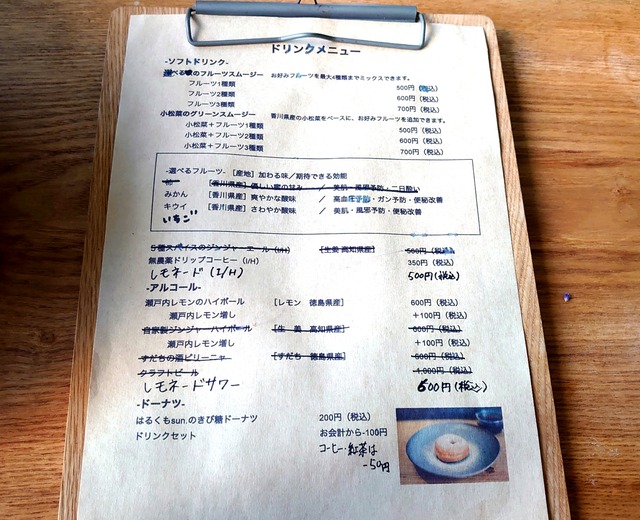 ドリンクメニュー
-ソフトドリンク-
選べる旬のフルーツスムージー お好みフルーツを最大4種類までミックスできます。
フルーツ1種類 500円（税込）
フルーツ2種類 600円（税込）
フルーツ3種類 700円（税込）
小松菜のグリーンスムージー 香川県産の小松菜をベースに、お好みフルーツを追加できます。
小松菜＋フルーツ1種類 500円（税込）
小松菜＋フルーツ2種類 600円（税込）
小松菜＋フルーツ3種類 700円（税込）
-選べるフルーツ- [産地] 加わる味／期待できる効能
[香川県産] 優しい蜜の甘み ／ 美肌・風邪予防・二日酔い
みかん [香川県産] 爽やかな酸味 ／ 高血圧予防・ガン予防・便秘改善
キウイ [香川県産] さわやか酸味 ／ 美肌・風邪予防・便秘改善
いちご
5種スパイスのジンジャーエール（I/H） [生姜 高知県産] 560円（税込）
無農薬ドリップコーヒー（I/H） 350円（税込）
レモネード（I/H） 500円（税込）
-アルコール-
瀬戸内レモンのハイボール [レモン 徳島県産] 600円（税込）
瀬戸内レモン増し ＋100円（税込）
自家製ジンジャーハイボール [生 姜 高知県産] 600円（税込）
瀬戸内レモン増し ＋100円（税込）
すだちの酒ピリーニャ [すだち 徳島県産] 600円（税込）
クラフトビール 1,000円（税込）
レモネードサワー 600円（税込）
-ドーナツ-
はるくもsun.のきび糖ドーナツ 200円（税込）
ドリンクセット お会計から-100円
コーヒー・紅茶は
-50円